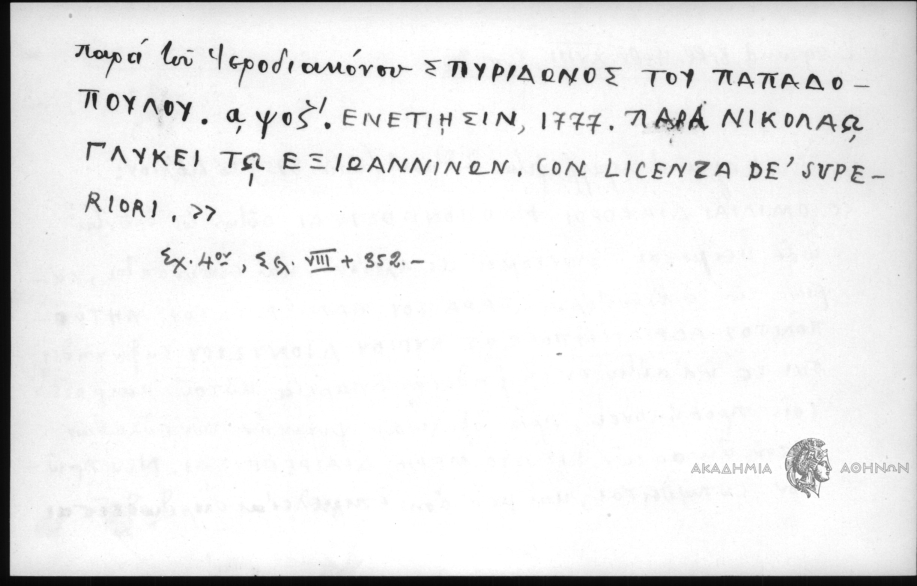 παρά τοῦ Ἱεροδιακόνου ΣΠΥΡΙΔΩΝΟΣ ΤΟΥ ΠΑΠΑΔΟ-
ΠΟΥΛΟΥ. ͵αψοζʹ. ΕΝΕΤΙΗΣΙΝ, 1777. ΠΑΡΑ ΝΙΚΟΛΑῼ
ΓΛΥΚΕΙ Τῼ ΕΞ ΙΩΑΝΝΙΝΩΝ. CON LICENZA DE' SUPE-
RIORI. »
Σχ. 4ον, Σελ. VIII + 352.-
ΑΚΑΔΗΜΙΑ ΑΘΗΝΩΝ